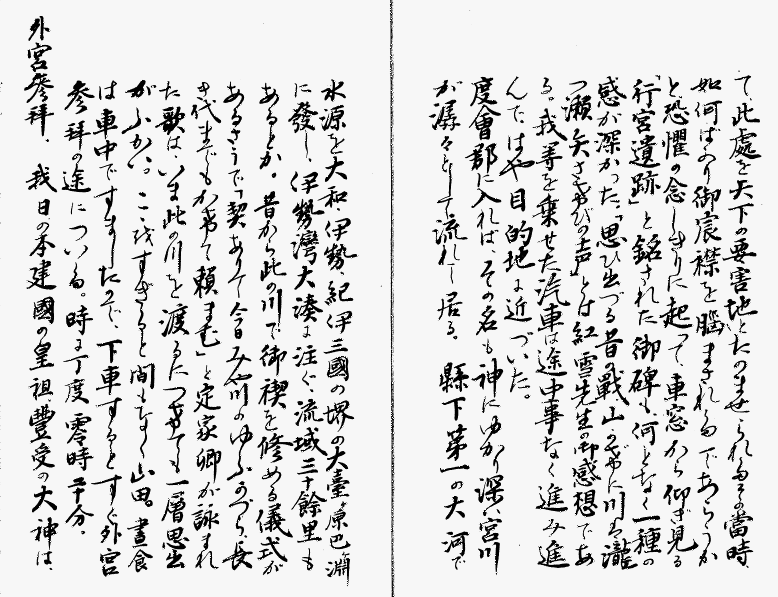 て、此處を天下の要害地とたのませられたる當時、
如何ばかり御宸襟を腦まされたるであらうか
と恐懼の念しきりに起って、車窓から仰ぎ見る
「行宮遺跡」と銘された御碑も何となく一種の
感が深かった。「思ひ出づる昔の戰山ぎはに川も瀧
つ瀬矢さけびの声」とは紅雪先生の御感想であ
る。我等を乗せた汽車は途中事なく進み進
んで、はや目的地に近づいた。
度會郡に入れば、その名も神にゆかり深い宮川
が潺々として流れて居る。縣下第一の大河で
水源を大和、伊勢、紀伊三國の堺の大臺原巴淵
に發し、伊勢灣大湊に注ぐ、流域三十餘里も
あるとか。昔から此の川で御禊を修める儀式が
あるさうで「契ありて今日みや川のゆふかづら、長
き代までもかけて頼まむ」と定家卿が詠まれ
た歌は、いま此の川を渡るにつけても一層思出
がふかい。こゝをすぎると間もなく山田。晝食
は車中ですましたので、下車するとすぐ外宮
参拜の途についた。時に丁度零時五十分。
外宮参拜。我日の本建國の皇祖豐受の大神は、